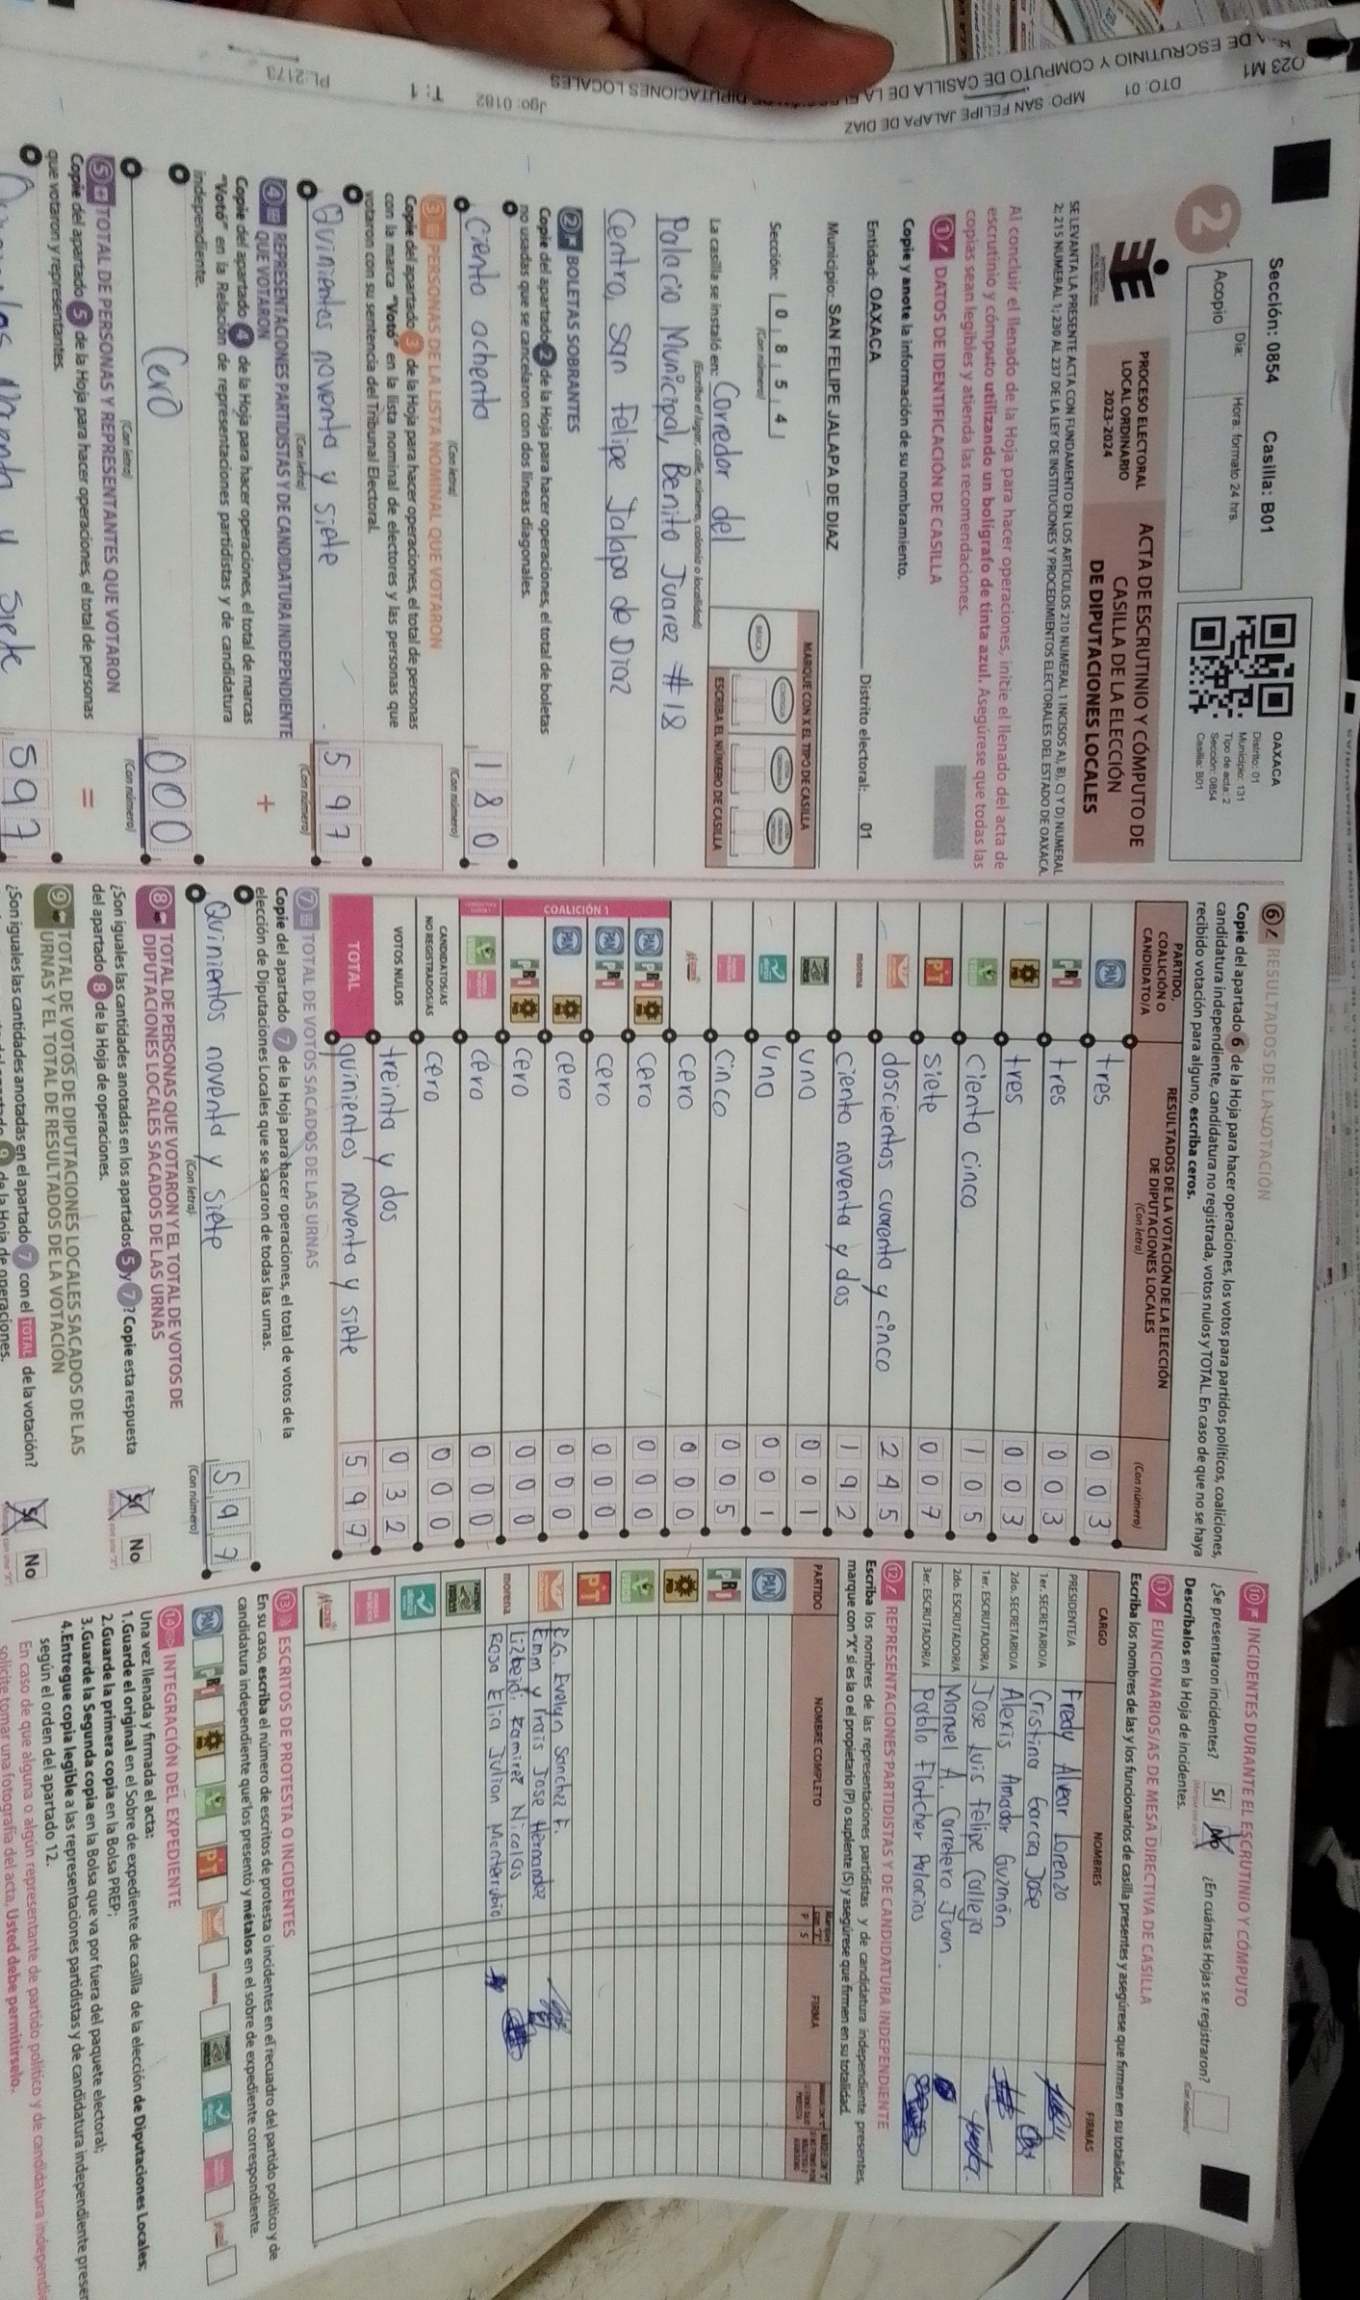 Sección: 0854 Casilla: B01
Día: Hora: formato 24 hrs.
2 Acopio
OAXACA
Distrito: 01
Municipio: 131
Tipo de acta: 2
Sección: 0854
Casilla: B01
PROCESO ELECTORAL
LOCAL ORDINARIO
2023-2024
ACTA DE ESCRUTINIO Y CÓMPUTO DE
CASILLA DE LA ELECCIÓN
DE DIPUTACIONES LOCALES
SE LEVANTA LA PRESENTE ACTA CON FUNDAMENTO EN LOS ARTÍCULOS 210 NUMERAL 1 INCISOS A), B), C) Y D) NUMERAL
2; 215 NUMERAL 1; 230 AL 237 DE LA LEY DE INSTITUCIONES Y PROCEDIMIENTOS ELECTORALES DEL ESTADO DE OAXACA.
Al concluir el llenado de la Hoja para hacer operaciones, inicie el llenado del acta de
escrutinio y cómputo utilizando un bolígrafo de tinta azul. Asegúrese que todas las
copias sean legibles y atienda las recomendaciones.
1 DATOS DE IDENTIFICACIÓN DE CASILLA
Copie y anote la información de su nombramiento.
Entidad: OAXACA Distrito electoral: 01
Municipio: SAN FELIPE JALAPA DE DIAZ
Sección: 0 8 5 4
(Con número)
MARQUE CON X EL TIPO DE CASILLA
BÁSICA
ESCRIBA EL NÚMERO DE CASILLA
La casilla se instaló en: Corredor del
(Escriba el lugar, calle, número, colonia o localidad)
Palacio Municipal, Benito Juarez #18
Centro, San Felipe Jalapa de Diaz
2 BOLETAS SOBRANTES
Copie del apartado 2 de la Hoja para hacer operaciones, el total de boletas
no usadas que se cancelaron con dos líneas diagonales.
ciento ochenta 180
(Con letra) (Con número)
3 PERSONAS DE LA LISTA NOMINAL QUE VOTARON
Copie del apartado 3 de la Hoja para hacer operaciones, el total de personas
con la marca "Votó" en la lista nominal de electores y las personas que
votaron con su sentencia del Tribunal Electoral.
Quinientos noventa y siete 597
(Con letra) (Con número)
4 REPRESENTACIONES PARTIDISTAS Y DE CANDIDATURA INDEPENDIENTE
QUE VOTARON +
Copie del apartado 4 de la Hoja para hacer operaciones, el total de marcas
"Votó" en la Relación de representaciones partidistas y de candidatura
independiente.
Cero 000
(Con letra) (Con número)
5 TOTAL DE PERSONAS Y REPRESENTANTES QUE VOTARON =
Copie del apartado 5 de la Hoja para hacer operaciones, el total de personas
que votaron y representantes.
y siete 597
6 RESULTADOS DE LA VOTACIÓN
Copie del apartado 6 de la Hoja para hacer operaciones, los votos para partidos políticos, coaliciones,
candidatura independiente, candidatura no registrada, votos nulos y TOTAL. En caso de que no se haya
recibido votación para alguno, escriba ceros.
PARTIDO,
COALICIÓN O
CANDIDATO/A
RESULTADOS DE LA VOTACIÓN DE LA ELECCIÓN
DE DIPUTACIONES LOCALES
(Con letra) (Con número)
PAN tres 003
PRI tres 003
PRD tres 003
Ciento cinco 105
PT siete 007
doscientos cuarenta y cinco 245
morena ciento noventa y dos 192
uno 001
uno 001
cinco 005
cero 000
COALICIÓN 1
PAN PRI PRD cero 000
PAN PRI cero 000
PAN PRD cero 000
PRI PRD cero 000
cero 000
CANDIDATOS/AS
NO REGISTRADOS/AS cero 000
VOTOS NULOS treinta y dos 032
TOTAL quinientos noventa y siete 597
7 TOTAL DE VOTOS SACADOS DE LAS URNAS
Copie del apartado 7 de la Hoja para hacer operaciones, el total de votos de la
elección de Diputaciones Locales que se sacaron de todas las urnas.
Quinientos noventa y siete 597
(Con letra) (Con número)
8 TOTAL DE PERSONAS QUE VOTARON Y EL TOTAL DE VOTOS DE
DIPUTACIONES LOCALES SACADOS DE LAS URNAS
¿Son iguales las cantidades anotadas en los apartados 5 y 7? Copie esta respuesta
del apartado 8 de la Hoja de operaciones.
Sí No
9 TOTAL DE VOTOS DE DIPUTACIONES LOCALES SACADOS DE LAS
URNAS Y EL TOTAL DE RESULTADOS DE LA VOTACIÓN
¿Son iguales las cantidades anotadas en el apartado 7 con el TOTAL de la votación?
de la Hoja de operaciones.
Sí No
10 INCIDENTES DURANTE EL ESCRUTINIO Y CÓMPUTO
¿Se presentaron incidentes? Sí No ¿En cuántas Hojas se registraron?
Descríbalos en la Hoja de incidentes.
11 FUNCIONARIOS/AS DE MESA DIRECTIVA DE CASILLA
Escriba los nombres de las y los funcionarios de casilla presentes y asegúrese que firmen en su totalidad.
CARGO NOMBRES FIRMAS
PRESIDENTE/A Fredy Alvear Lorenzo
1er. SECRETARIO/A Cristina Garcia Jose
2do. SECRETARIO/A Alexis Amador Guzmán
1er. ESCRUTADOR/A Jose Luis Felipe Calleja
2do. ESCRUTADOR/A Manuel A. Carretero Juan.
3er. ESCRUTADOR/A Pablo Flotcher Palacios
12 REPRESENTACIONES PARTIDISTAS Y DE CANDIDATURA INDEPENDIENTE
Escriba los nombres de las representaciones partidistas y de candidatura independiente presentes,
marque con "X" si es la o el propietario (P) o suplente (S) y asegúrese que firmen en su totalidad.
PARTIDO NOMBRE COMPLETO P S FIRMA
PAN
PRI
PRD
PT
Evelyn Sanchez F.
Emm y Irais Jose Hernandez
morena Lizbeidi Ramirez Nicolas
Rosa Elia Julian Monterrubio
13 ESCRITOS DE PROTESTA O INCIDENTES
En su caso, escriba el número de escritos de protesta o incidentes en el recuadro del partido político y de
candidatura independiente que los presentó y métalos en el sobre de expediente correspondiente.
PAN PRI PRD PT
14 INTEGRACIÓN DEL EXPEDIENTE
Una vez llenada y firmada el acta:
1.Guarde el original en el Sobre de expediente de casilla de la elección de Diputaciones Locales;
2.Guarde la primera copia en la Bolsa PREP;
3.Guarde la Segunda copia en la Bolsa que va por fuera del paquete electoral;
4.Entregue copia legible a las representaciones partidistas y de candidatura independiente
según el orden del apartado 12.
En caso de que alguna o algún representante de partido político y de candidatura
solicite tomar una fotografía del acta, Usted debe permitírselo.
O23 M1 DTO: 01 MPO: SAN FELIPE JALAPA DE DIAZ
DE ESCRUTINIO Y COMPUTO DE CASILLA DE LA DIPUTACIONES LOCALES
Jgo: 0182 T: 1 PL:2173